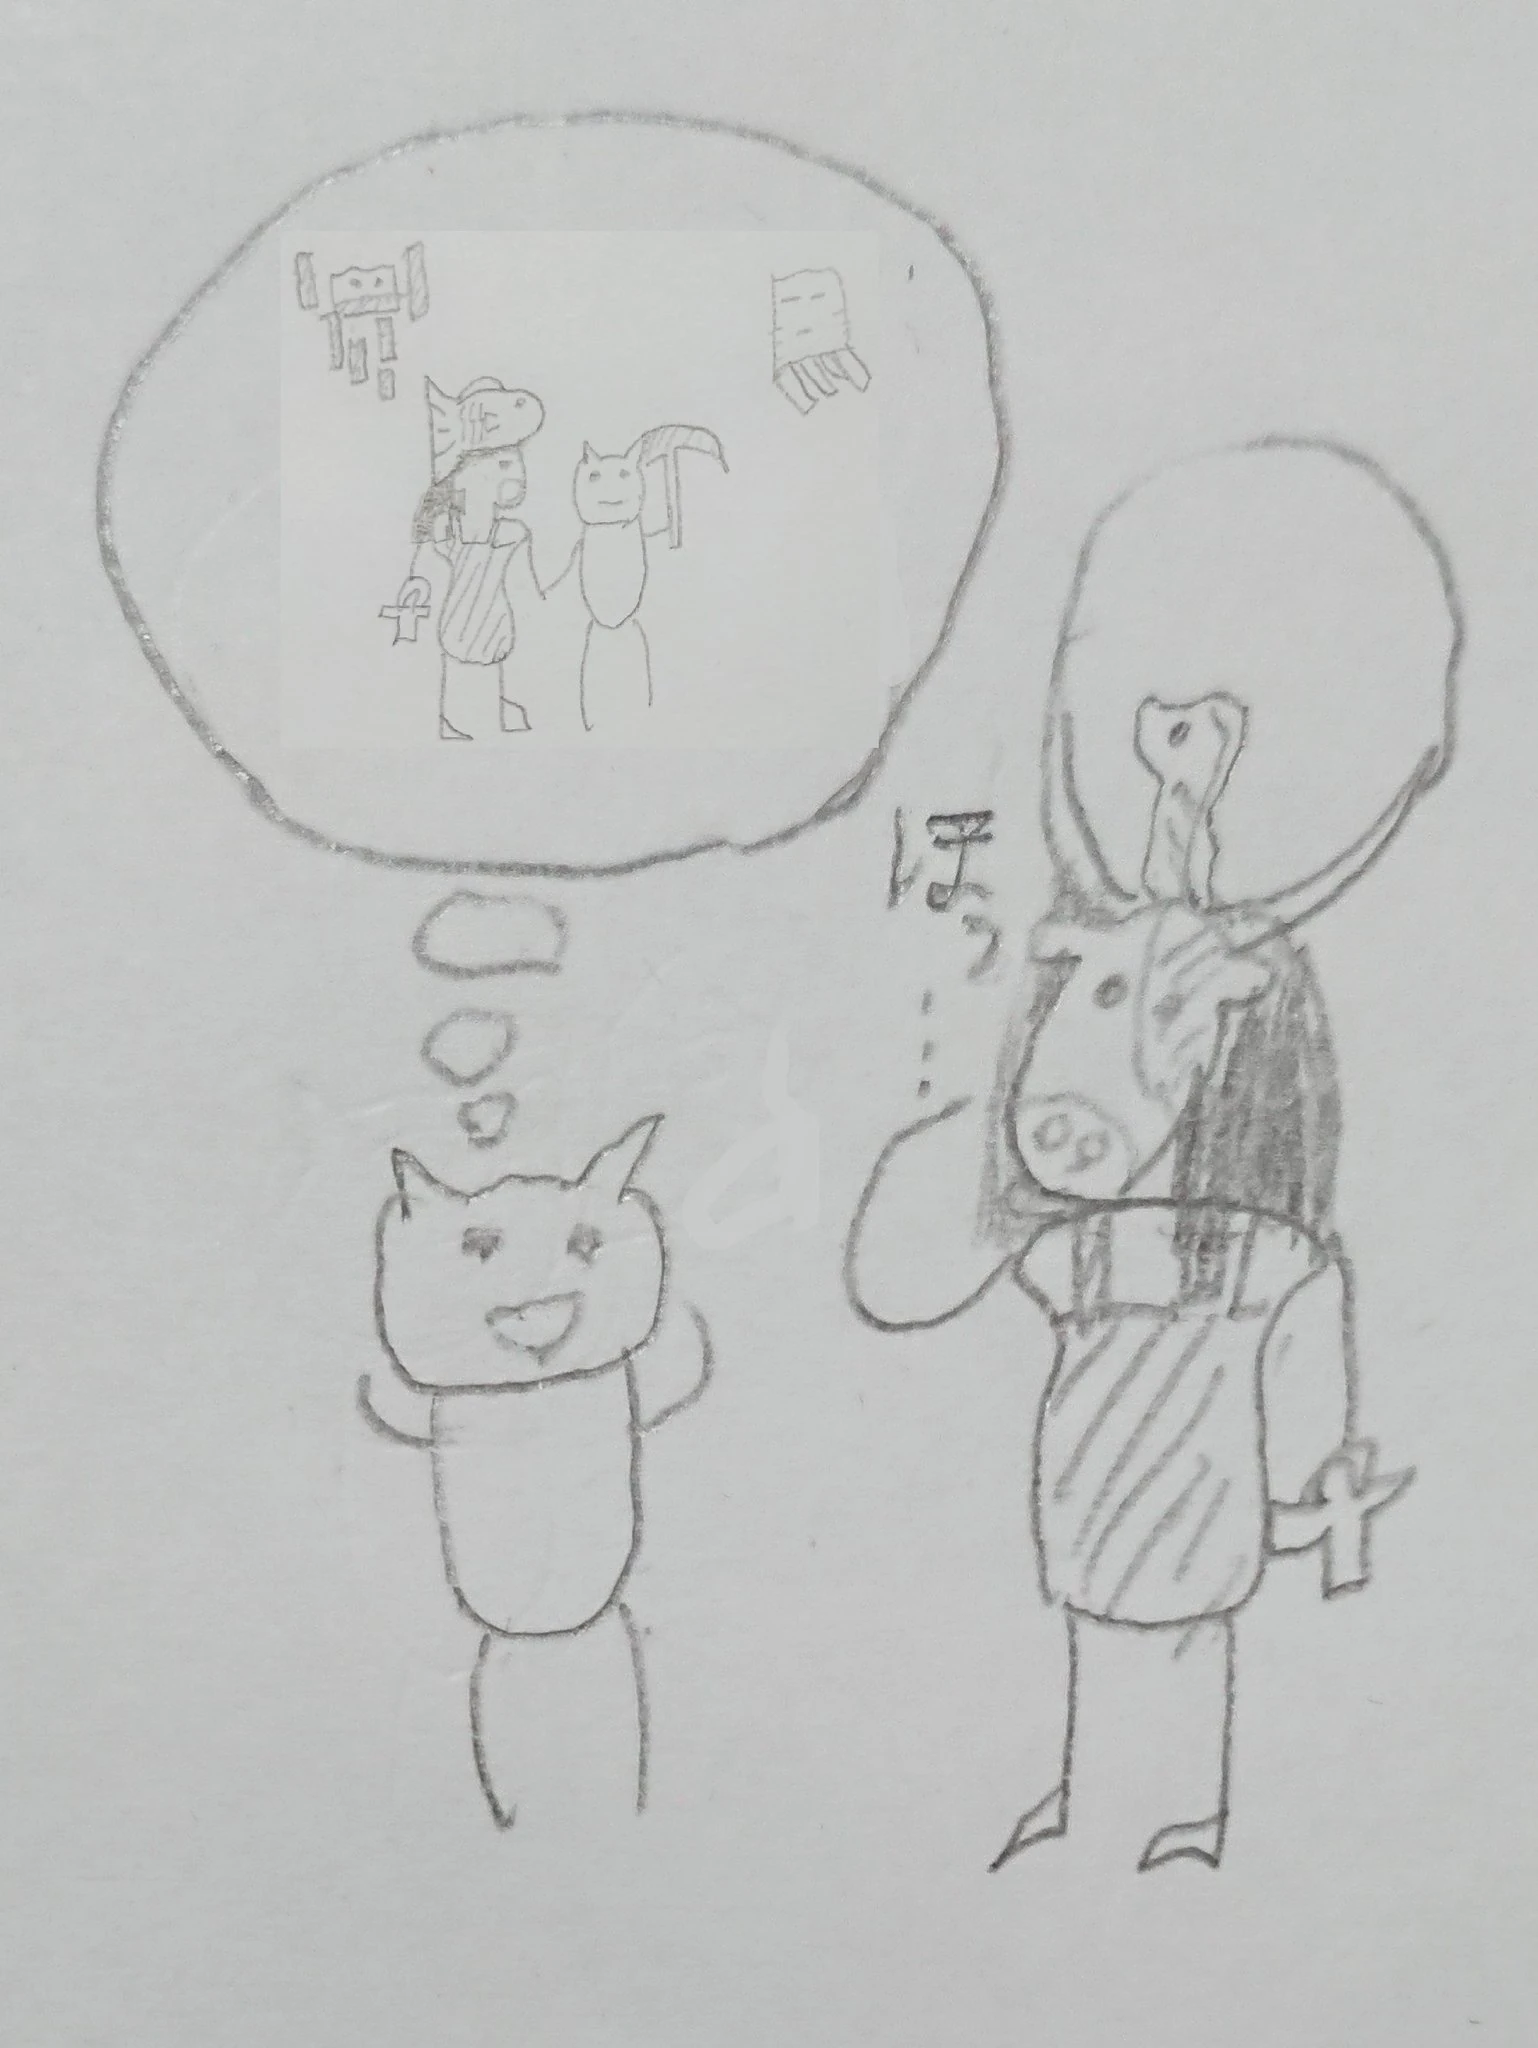 ほっ…